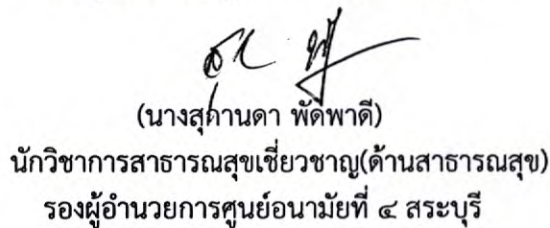 (นางสุกานดา พัดพาดี)
นักวิชาการสาธารณสุขเชี่ยวชาญ(ด้านสาธารณสุข)
รองผู้อำนวยการศูนย์อนามัยที่ ๔ สระบุรี